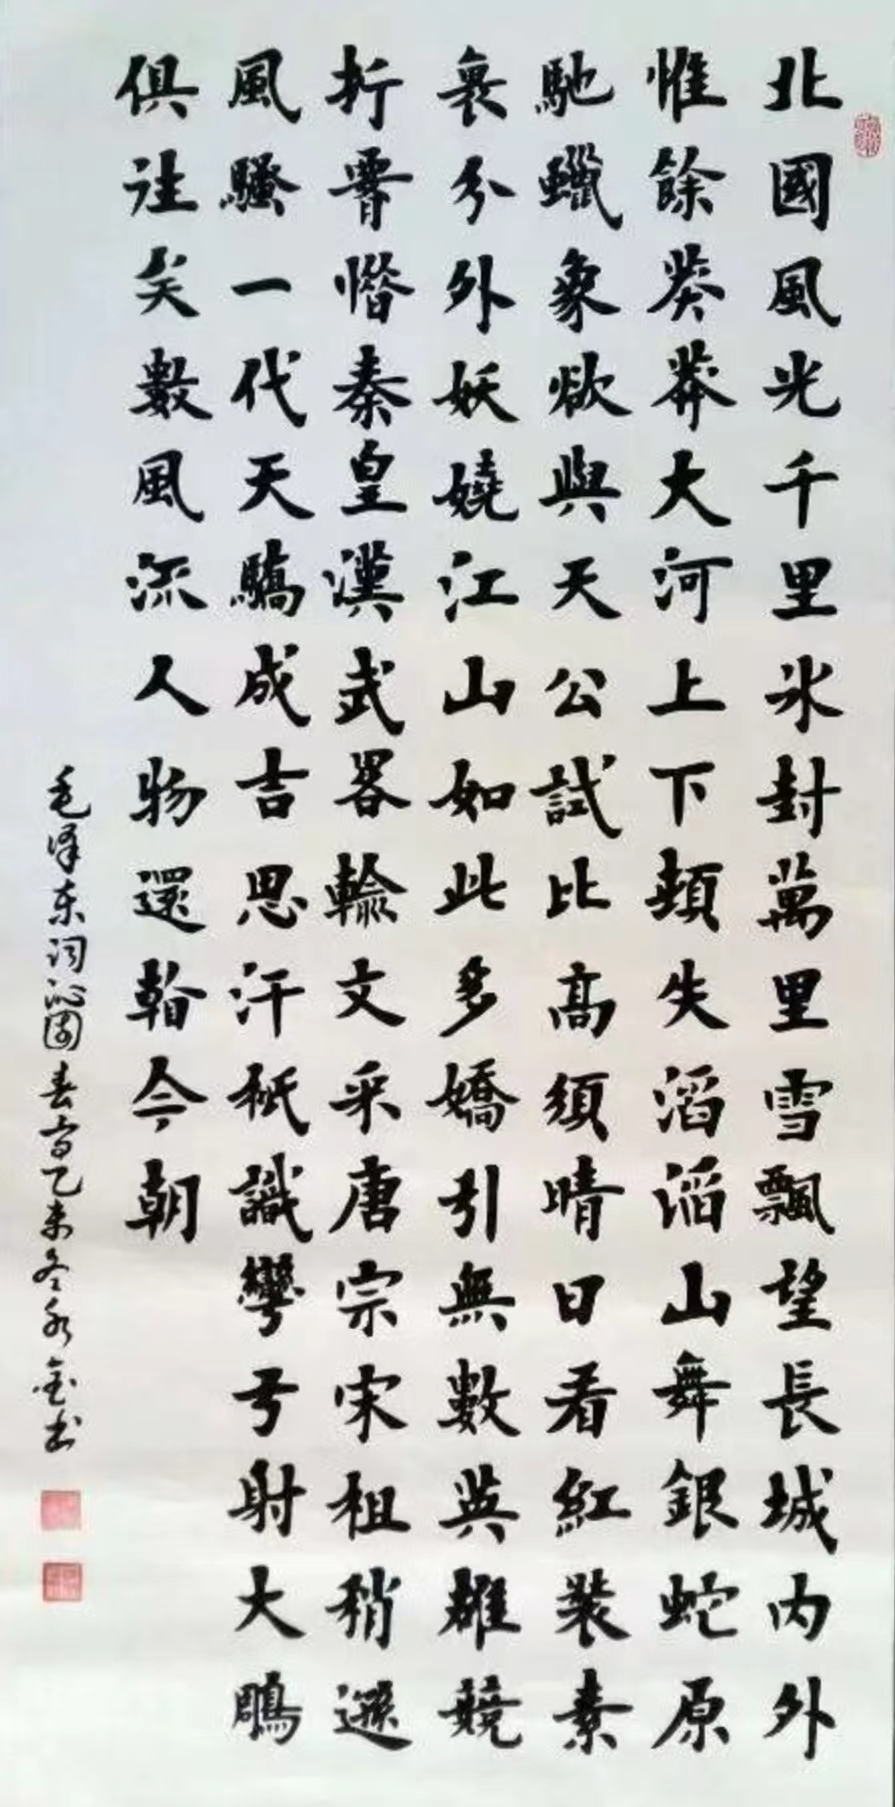 北國風光千里冰封萬里雪飄望長城內外
惟餘莽莽大河上下頓失滔滔山舞銀蛇原
馳蠟象欲與天公試比高須晴日看紅裝素
裹分外妖嬈江山如此多嬌引無數英雄競
折腰惜秦皇漢武畧輸文采唐宗宋祖稍遜
風騷一代天驕成吉思汗衹識彎弓射大鵰
俱往矣數風流人物還看今朝
毛泽东词沁园春雪乙未冬永金书